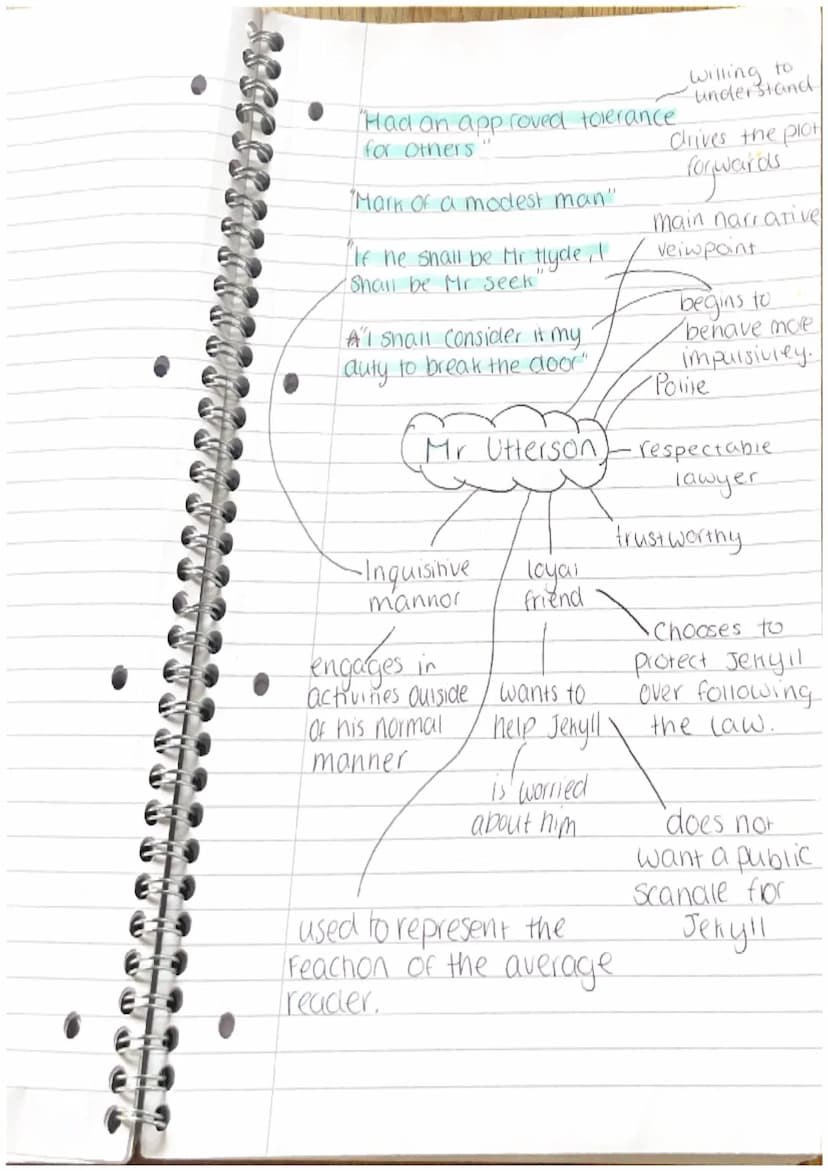 willing to
understand
"Had an approved tolerance
for others"
drives the plot
forwards
"Mark of a modest man"
main narrative
veiwpoint
"If he shall be Mr Hyde, I
shall be Mr Seek"
begins to
behave more
impulsivley.
"I shall consider it my
duty to break the door"
Polite
Mr Utterson
respectable
lawyer
trustworthy
Inquisitive
mannor
loyal
friend
chooses to
protect Jekyll
over following
the law.
engages in
activities outside
of his normal
manner
wants to
help Jekyll
is worried
about him
does not
want a public
scandle for
Jekyll
used to represent the
reaction of the average
reader.